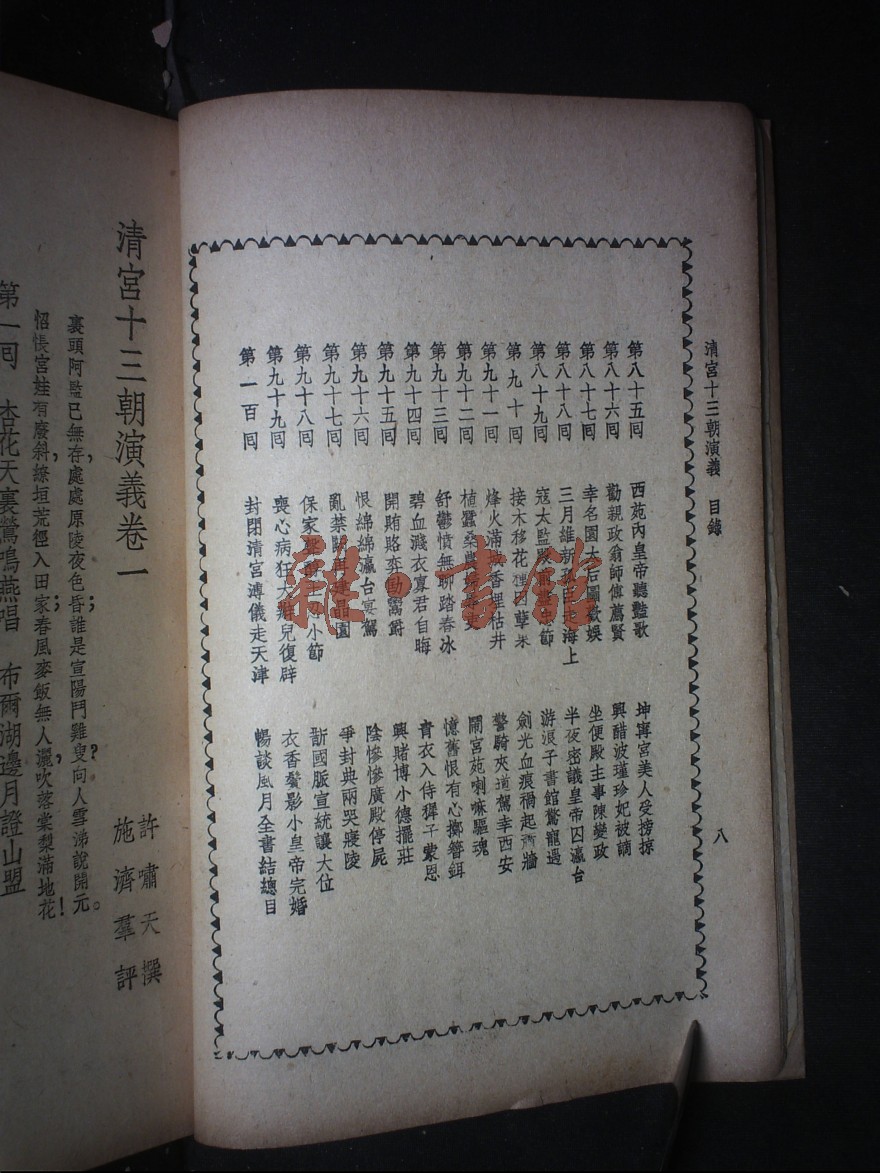 清宮十三朝演義　目錄
八
第八十五囘　西苑內皇帝聽豔歌　坤寗宮美人受搒掠
第八十六囘　勸親政翁師傅薦賢　興醋波瑾珍妃被謫
第八十七囘　幸名園太后圖歡娛　坐便殿主事陳變政
第八十八囘　三月維新孤臣走海上　半夜密議皇帝囚瀛台
第八十九囘　寇太監　節　游浪子書館驚寵遇
第九十囘　接木移花種因孽果　劍光血痕禍起蕭牆
第九十一囘　烽火滿城香埋枯井　警騎夾道駕幸西安
第九十二囘　植蠶桑農婦　鬧宮苑喇嘛驅魂
第九十三囘　舒鬱憤無聊踏春冰　憶舊恨有心擲簪鉺
第九十四囘　碧血濺衣寡君自晦　青衣入侍猩子蒙恩
第九十五囘　開賄賂奕劻鬻爵　興賭博小德擺莊
第九十六囘　恨綿綿瀛台宴駕　陰慘慘廣殿停屍
第九十七囘　亂禁闕再建晶園　爭封典兩哭寢陵
第九十八囘　保家　小節　斷國脈宣統讓大位
第九十九囘　喪心病狂大辮兒復辟　衣香鬢影小皇帝完婚
第一百囘　封閉清宮溥儀走天津　暢談風月全書結總目
清宮十三朝演義卷一
許嘯天撰
施濟羣評
裏頭阿監已無存，處處原陵夜色昏；誰是宣陽門難叟？向人雪涕說開元。
怊悵宮娃有廢斜，繚垣荒徑入田家；春風麥飯無人灑，吹落棠梨滿地花！
第一囘　杏花天裏鶯鳴燕唱　布爾湖邊月證山盟
雜·書館